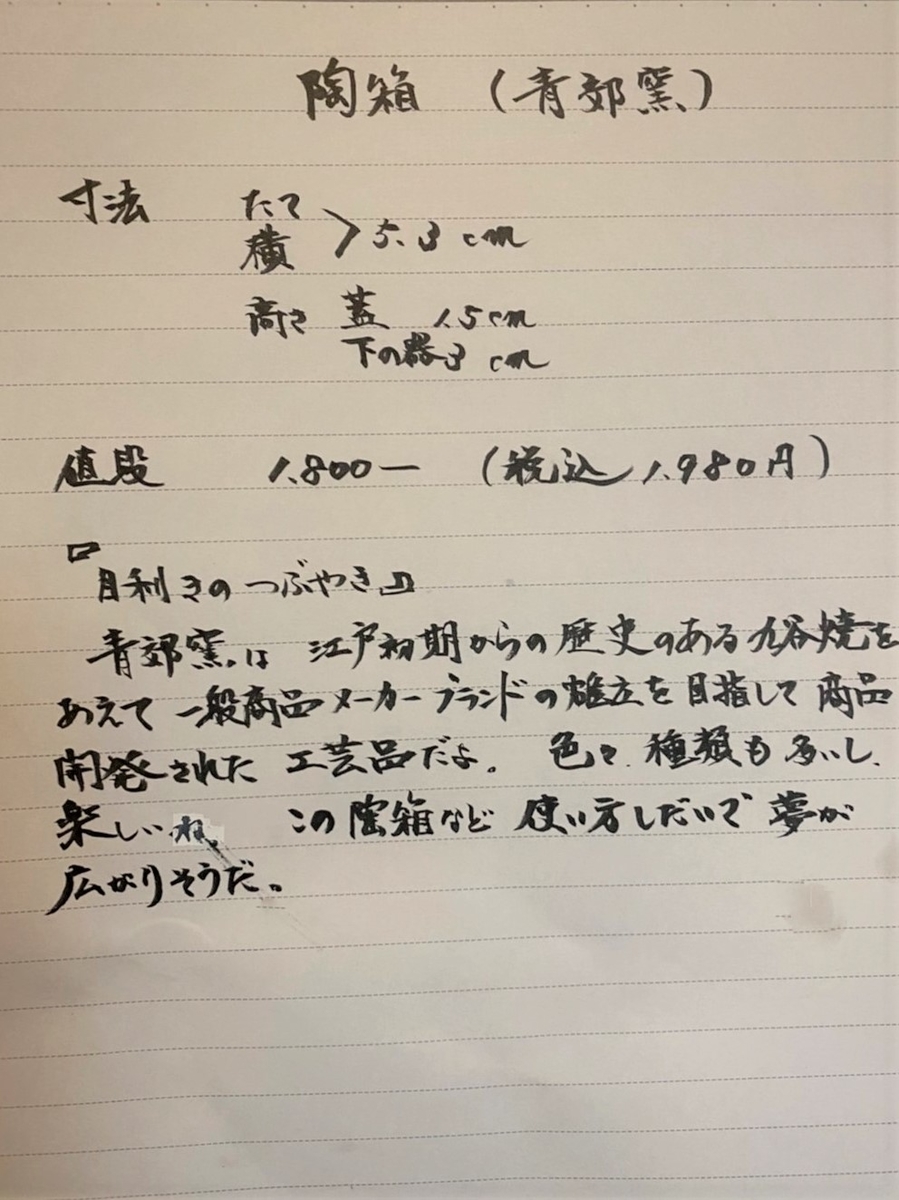 陶箱 (青郊窯)
寸法 たて
横 > 5.3 cm
高さ 蓋 1.5cm
下の器3 cm
値段 1.800ー (税込 1.980円)
『目利きのつぶやき』
青郊窯は 江戸初期からの歴史のある九谷焼を
あえて一般商品メーカーブランドの確立を目指して商品
開発された 工芸品だよ。 色々 種類も多いし、
楽しいね。 この陶箱など 使い方しだいで夢が
広がりそうだ。